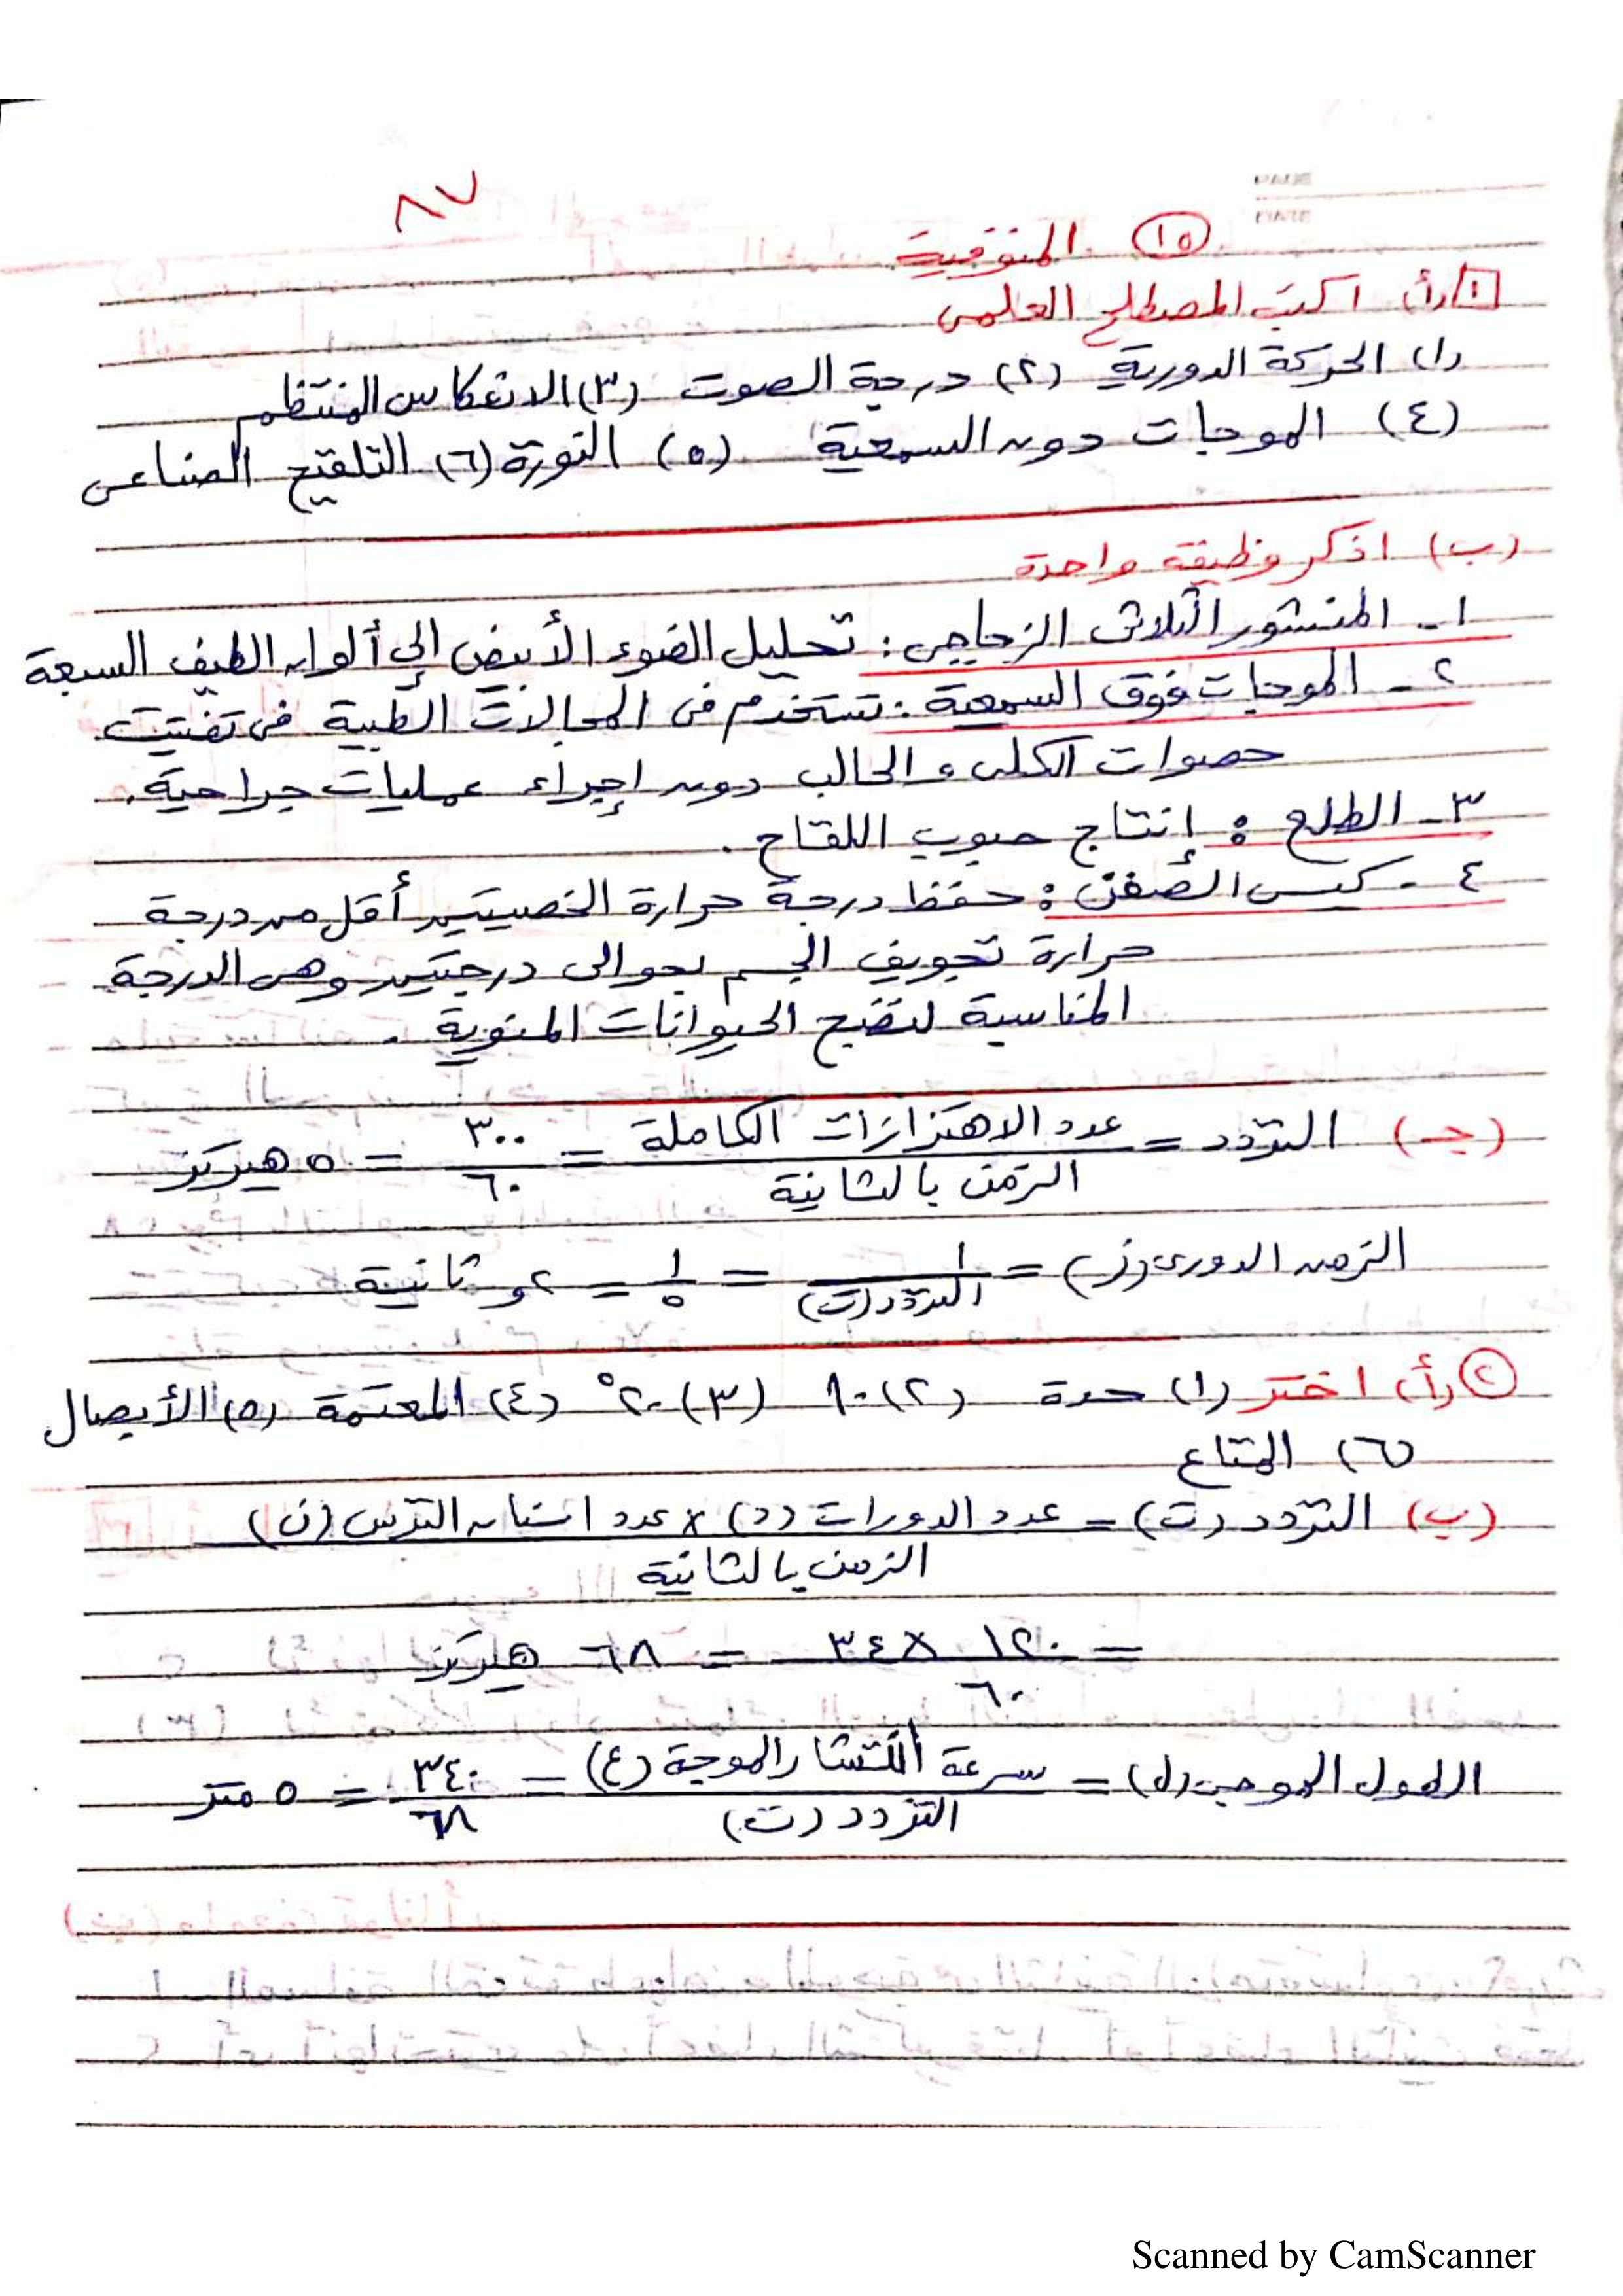 ٨٧
(١٥) المنوفية
١ (أ) اكتب المصطلح العلمى
(١) الحركة الدورية (٢) درجة الصوت (٣) الانعكاس المنتظم
(٤) الموجات دون السمعية (٥) النورة (٦) التلقيح الصناعى
(ب) اذكر وظيفة واحدة
١- المنشور الثلاثى الزجاجى : تحليل الضوء الأبيض إلى ألوان الطيف السبعة
٢- الموجات فوق السمعية : تستخدم فى المجالات الطبية فى تفتيت
حصوات الكلى والحالب دون إجراء عمليات جراحية .
٣- الطلع : إنتاج حبوب اللقاح .
٤- كيس الصفن : حفظ درجة حرارة الخصيتين أقل من درجة
حرارة تجويف الجسم بحوالى درجتين وهى الدرجة
المناسبة لنضج الحيوانات المنوية .
(جـ) التردد = عدد الاهتزازات الكاملة / الزمن بالثانية = ٣٠٠ / ٦٠ = ٥ هيرتز
الزمن الدورى (ز) = ١ / التردد (ت) = ١ / ٥ = ٢و ثانية
(٢) (أ) اختر (١) حدة (٢) (٣) ٢٠° (٤) المعتمة (٥) الأبصال
(٦) المتاع
(ب) التردد (ت) = عدد الدورات (د) × عدد اسنان الترس (ن) / الزمن بالثانية
= ١٢٠ × ٣٤ / ٦٠ = ٦٨ هيرتز
الطول الموجى (ل) = سرعة انتشار الموجة (ع) / التردد (ت) = ٣٤٠ / ٦٨ = ٥ متر
Scanned by CamScanner